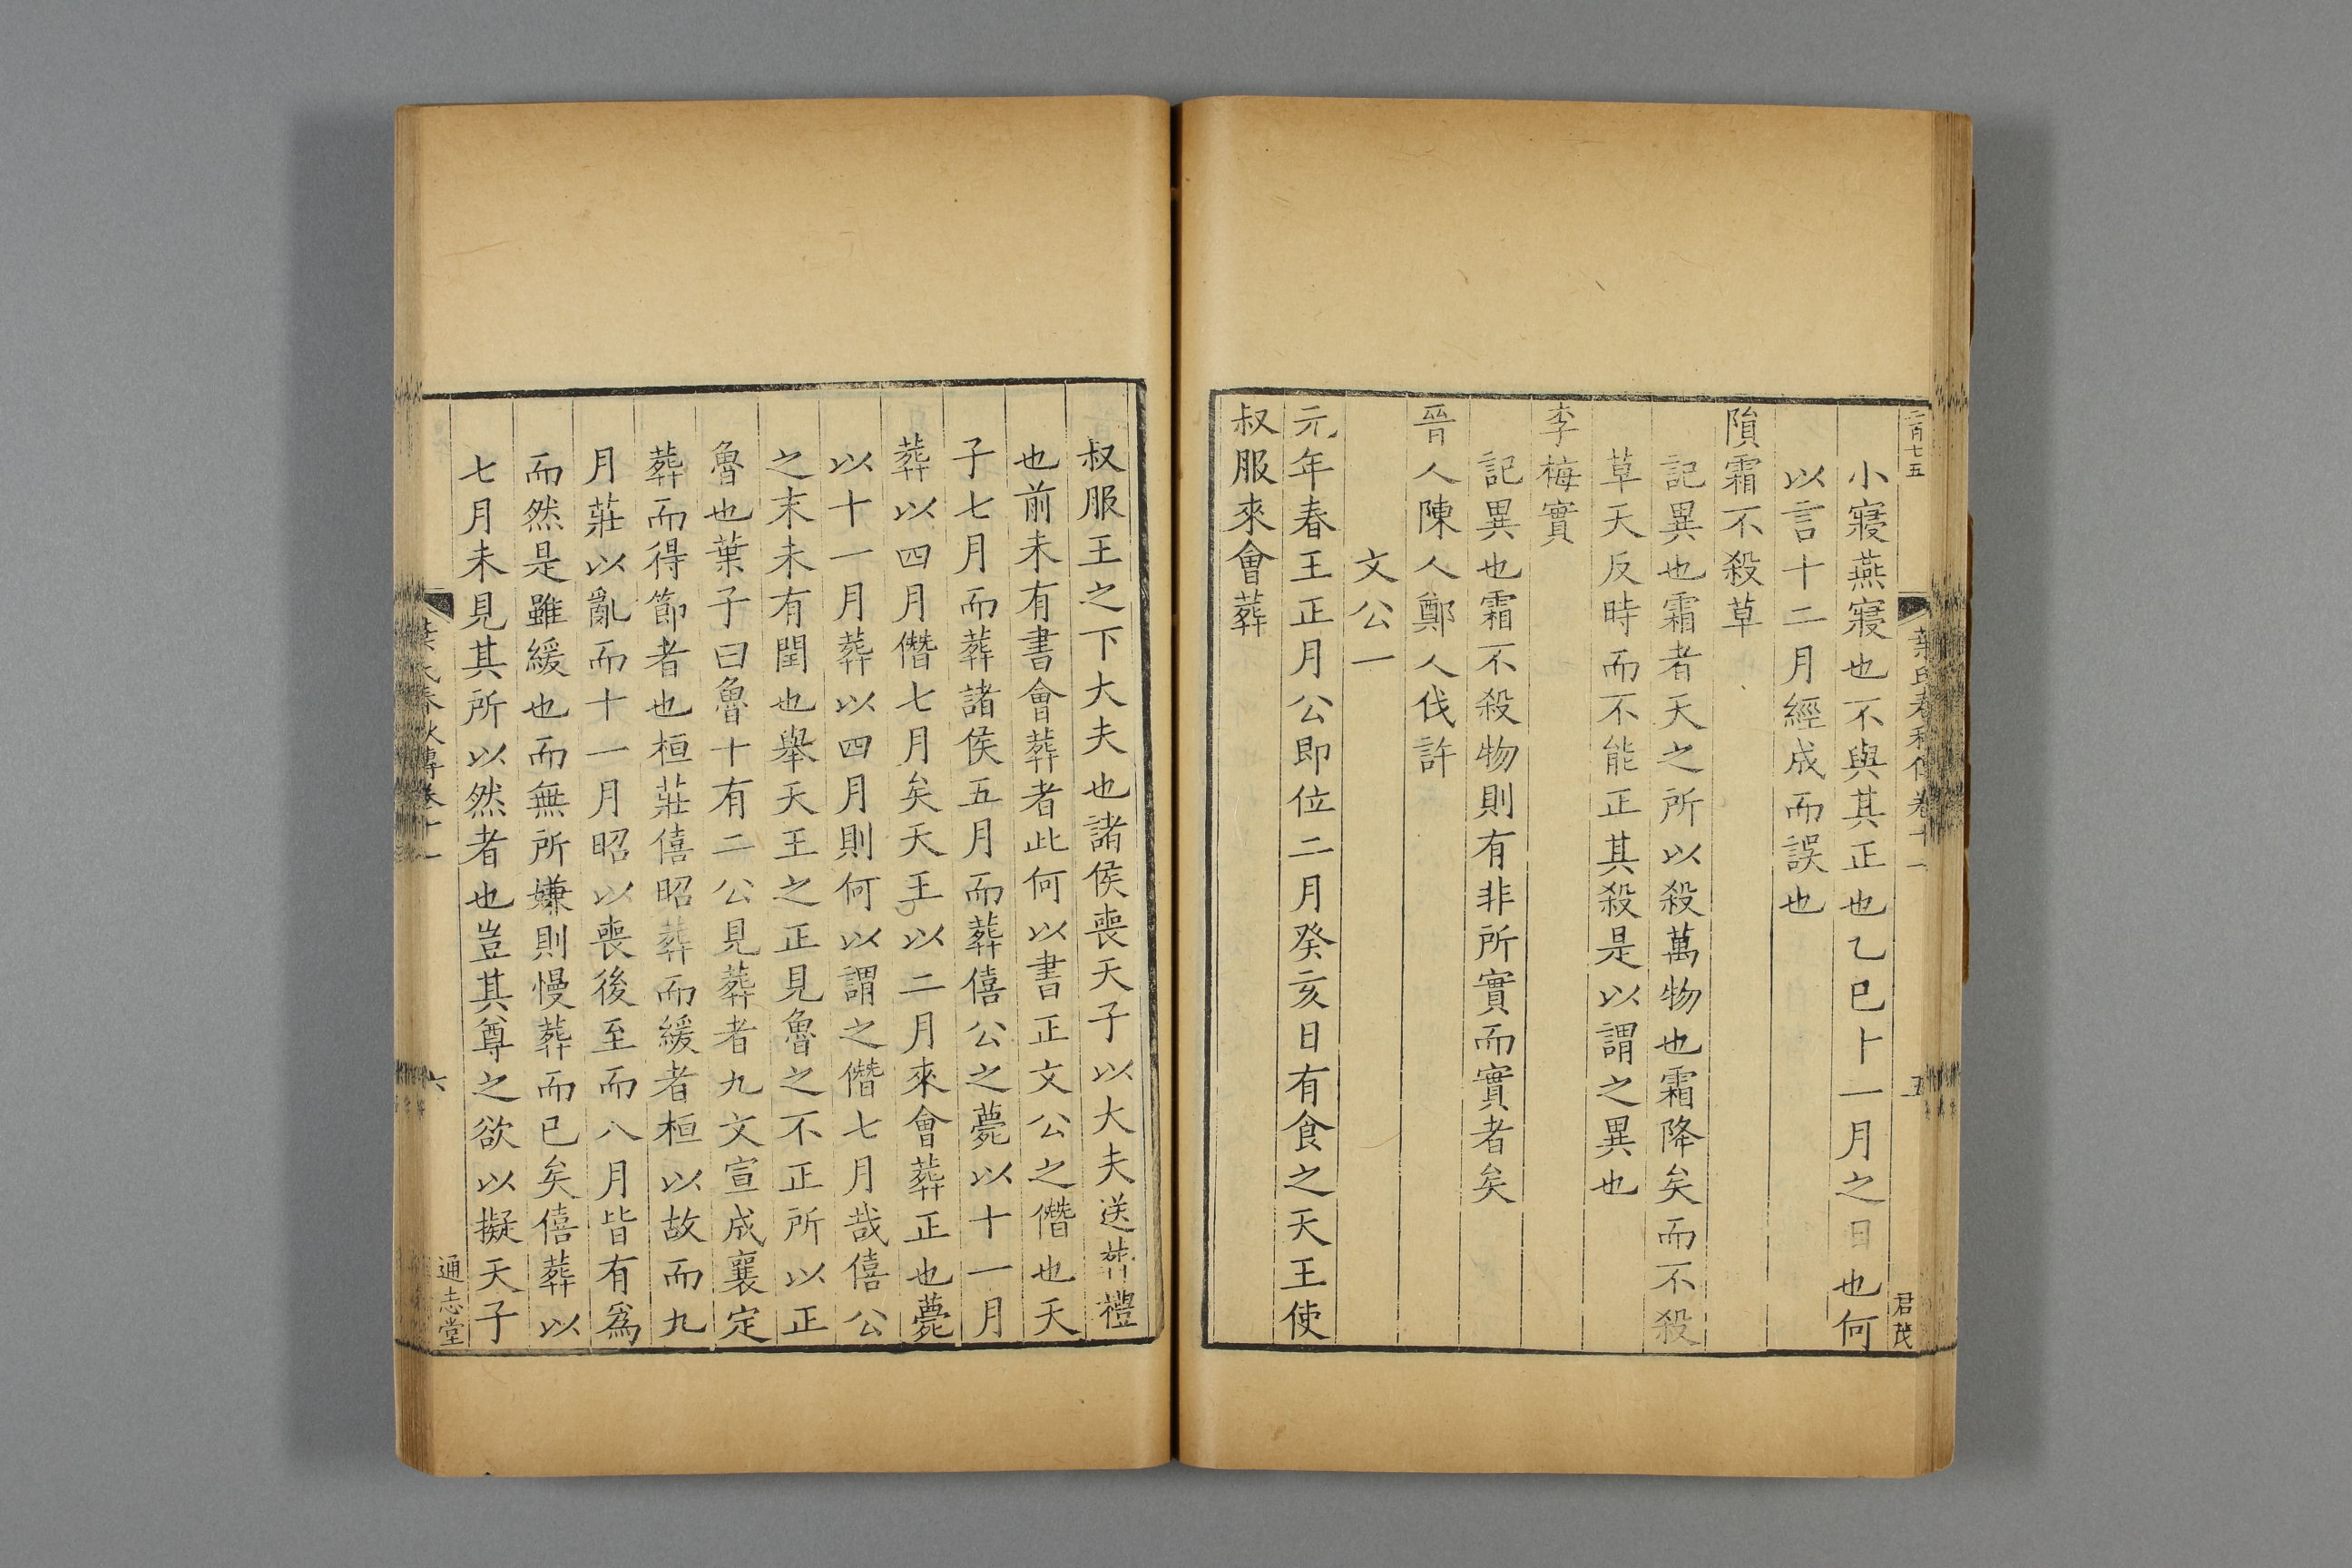 二百七五
葉氏春秋傳卷十一
五
君茂
小寢燕寢也不與其正也乙巳卜一月之日也何
以言十二月經成而誤也
隕霜不殺草
記異也霜者天之所以殺萬物也霜降矣而不殺
草天反時而不能正其殺是以謂之異也
李梅實
記異也霜不殺物則有非所實而實者矣
晉人陳人鄭人伐許
文公一
元年春王正月公即位二月癸亥日有食之天王使
叔服來會葬
叔服王之下大夫也諸侯喪天子以大夫送葬禮
也前未有書會葬者此何以書正文公之僭也天
子七月而葬諸侯五月而葬僖公之薨以十一月
葬以四月僭七月矣天王以二月來會葬正也薨
以十一月葬以四月則何以謂之僭七月哉僖公
之末未有閏也舉天王之正見魯之不正所以正
魯也葉子曰魯十有二公見葬者九文宣成襄定
葬而得節者也桓莊僖昭葬而緩者桓以故而九
月莊以亂而十一月昭以喪後至而八月皆有爲
而然是雖緩也而無所嫌則慢葬而已矣僖葬以
七月未見其所以然者也豈其尊之欲以擬天子
葉氏春秋傳卷十一
六
通志堂